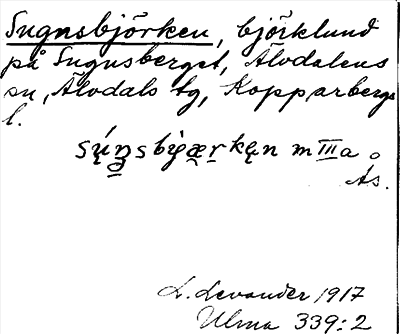 Sugnsbjörken, björklund
på Sugnsberget, Älvdalens
sn, Älvdals tg, Kopparbergs
l.
sų́n̥sbi̯æ̣rkęn m III a
Ås.
L. Levander 1917
Ulma 339:2